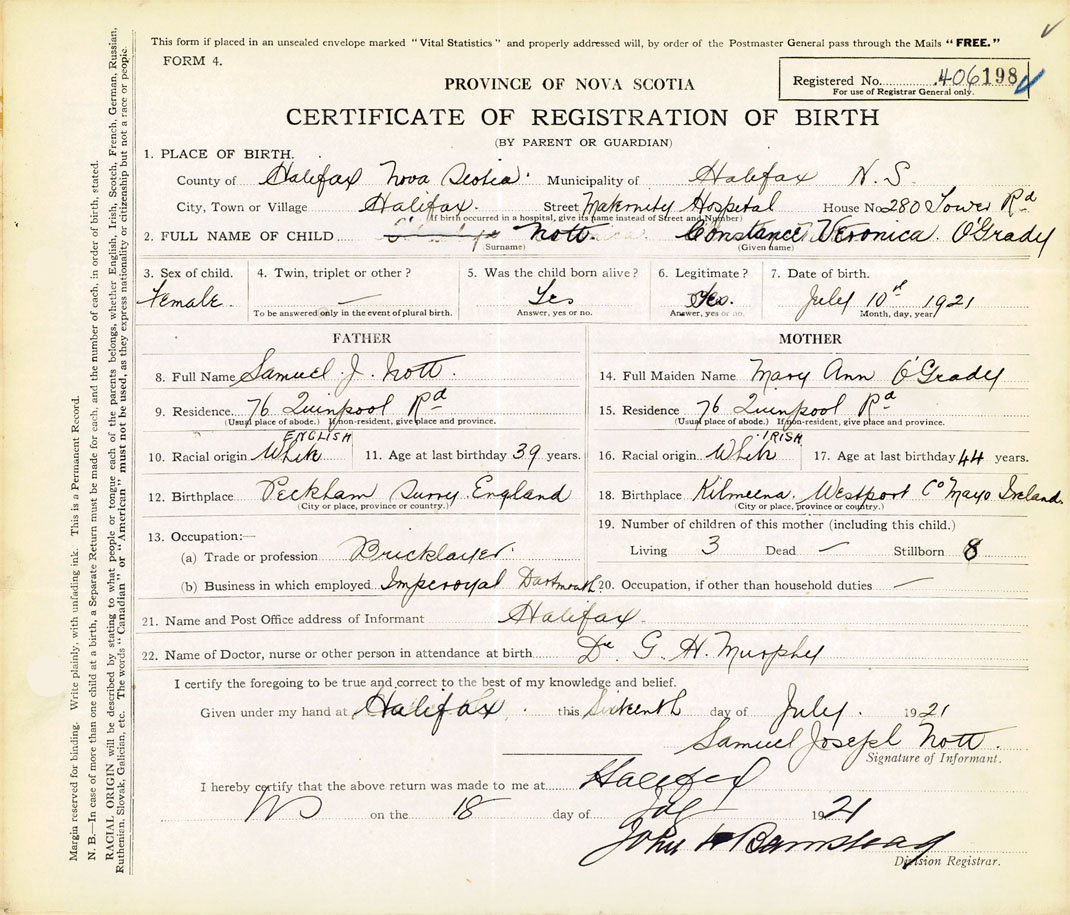 This form if placed in an unsealed envelope marked "Vital Statistics" and properly addressed will, by order of the Postmaster General pass through the Mails "FREE."
FORM 4.
Registered No. 406198
For use of Registrar General only.
PROVINCE OF NOVA SCOTIA
CERTIFICATE OF REGISTRATION OF BIRTH
(BY PARENT OR GUARDIAN)
1. PLACE OF BIRTH.
County of Halifax Nova Scotia Municipality of Halifax N. S.
City, Town or Village Halifax. Street Maternity Hospital House No 280 Tower Rd
(If birth occurred in a hospital, give its name instead of Street and Number)
2. FULL NAME OF CHILD Nott. Constance Veronica O'Grady
(Surname) (Given name)
3. Sex of child. 4. Twin, triplet or other? 5. Was the child born alive? 6. Legitimate? 7. Date of birth.
Female. — Yes Yes. July 10th 1921
To be answered only in the event of plural birth. Answer, yes or no. Answer, yes or no. Month, day, year
FATHER
8. Full Name Samuel J. Nott.
9. Residence 76 Quinpool Rd
(Usual place of abode.) If non-resident, give place and province.
ENGLISH
10. Racial origin White 11. Age at last birthday 39 years.
12. Birthplace Peckham Surry England
(City or place, province or country.)
13. Occupation:—
(a) Trade or profession Bricklayer.
(b) Business in which employed Imperoyal Dartmouth
MOTHER
14. Full Maiden Name Mary Ann O'Grady
15. Residence 76 Quinpool Rd
(Usual place of abode.) If non-resident, give place and province.
IRISH
16. Racial origin White 17. Age at last birthday 44 years.
18. Birthplace Kilmeena. Westport Co Mayo Ireland.
(City or place, province or country.)
19. Number of children of this mother (including this child.)
Living 3 Dead — Stillborn 8
20. Occupation, if other than household duties —
21. Name and Post Office address of Informant Halifax
22. Name of Doctor, nurse or other person in attendance at birth Dr G. H. Murphy
I certify the foregoing to be true and correct to the best of my knowledge and belief.
Given under my hand at Halifax this Sixteenth day of July. 1921
Samuel Joseph Nott.
Signature of Informant.
I hereby certify that the above return was made to me at Halifax
NS on the 18 day of July 1921
John H Barnstead
Division Registrar.
Margin reserved for binding. Write plainly, with unfading ink. This is a Permanent Record.
N. B.—In case of more than one child at a birth, a Separate Return must be made for each, and the number of each, in order of birth, stated.
RACIAL ORIGIN will be described by stating to what people or tongue each of the parents belongs, whether English, Irish, Scotch, French, German, Russian,
Ruthenian, Slovak, Galician, etc. The words "Canadian" or "American" must not be used, as they express nationality or citizenship but not a race or people.